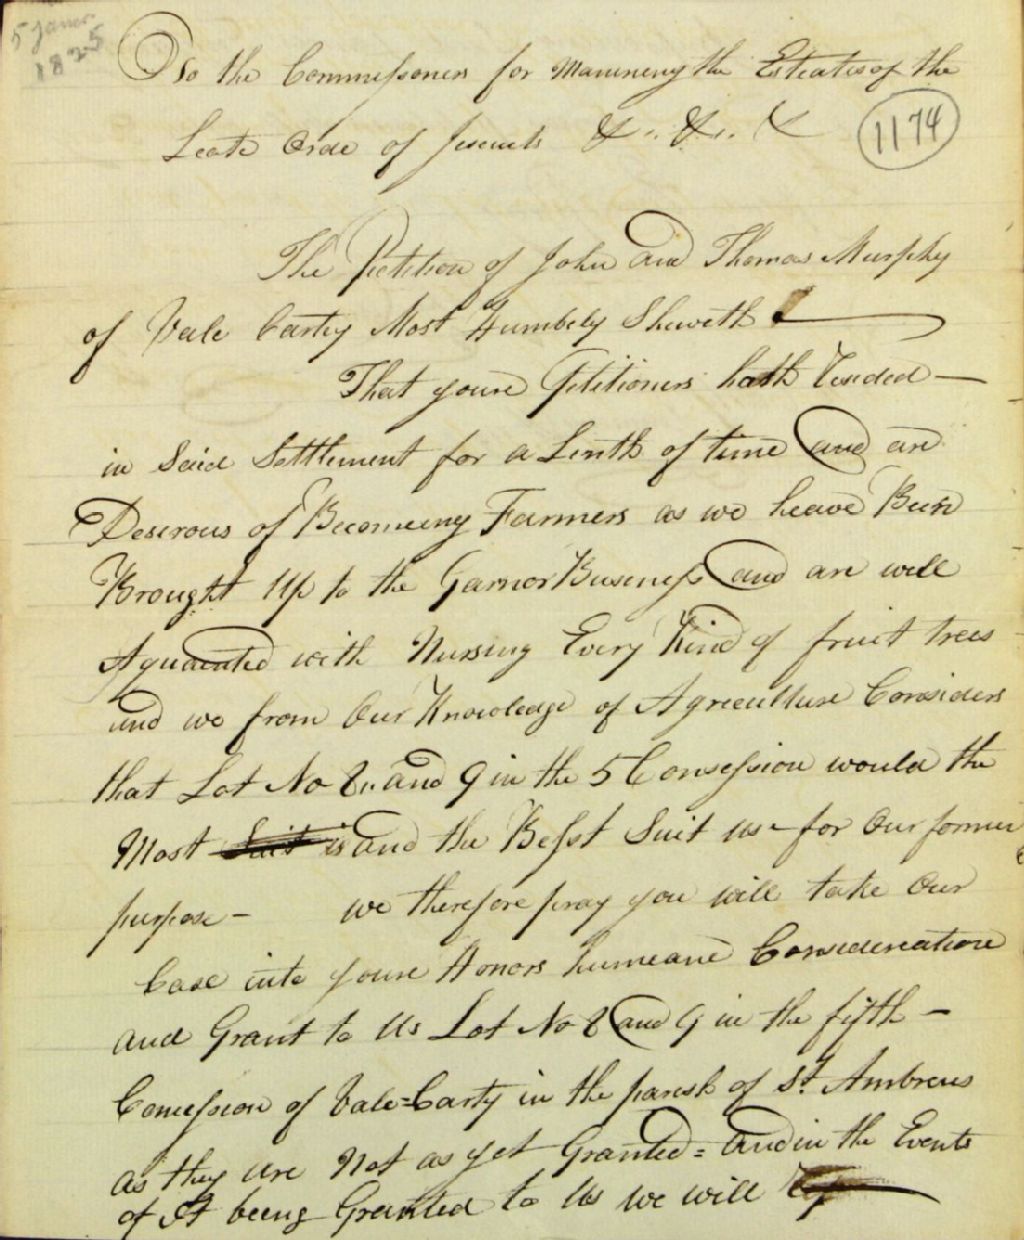 5 Janv.
1825
To the Commissioners for Mannineng the Esteates of the
Leate Orde of Jeseuits &. &. &
1174
The Petition of John and Thomas Murphy
of Vale Carty Most Humbely Sheweth
That youre Petitioners hath Reseded —
in Said Settlement for a Lenth of time and are
Deserous of Becomeing Farmers as we heave Been
Brought Up to the Garnor Buseness and are well
Aquaented with Nursing Every Kind of fruit trees
and we from Our Knowledge of Agreculture Considers
that Lot No 8 and 9 in the 5 Consession would the
Most Suit is and the Besst Suit us - for Our former
purpose - we therefore pray you will take Our
Case into youre Honors humeane Considereatione
and Grant to Us Lot No 8 and 9 in the fifth —
Concession of Vale=Carty in the parish of St. Ambreus
as they are Not as yet Granted = And in the Events
of It beeng Greanted to Us we will